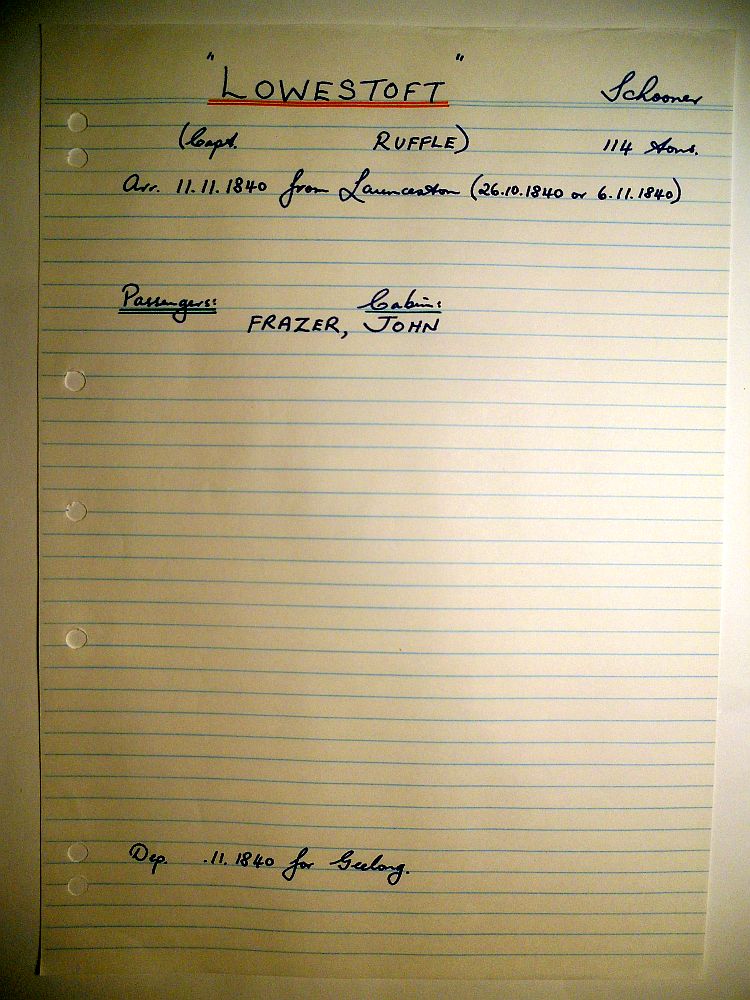 "LOWESTOFT" Schooner
(Capt. RUFFLE) 114 tons.
Arr. 11.11.1840 from Launceston (26.10.1840 or 6.11.1840)
Passengers: Cabin:
FRAZER, JOHN
Dep. .11.1840 for Geelong.